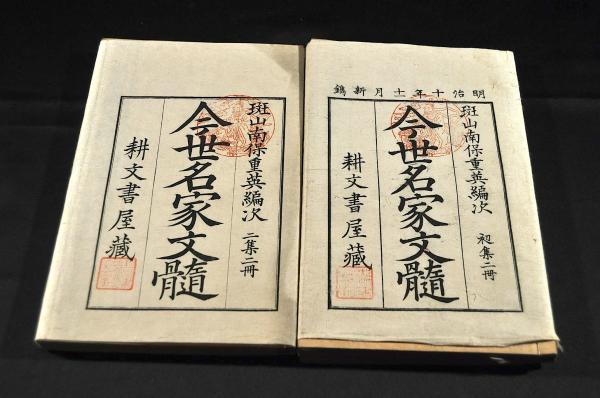 明治十年十一月新鐫
斑山南保重英編次 初集二冊
今世名家文髓
耕文書屋藏
斑山南保重英編次 二集二冊
今世名家文髓
耕文書屋藏